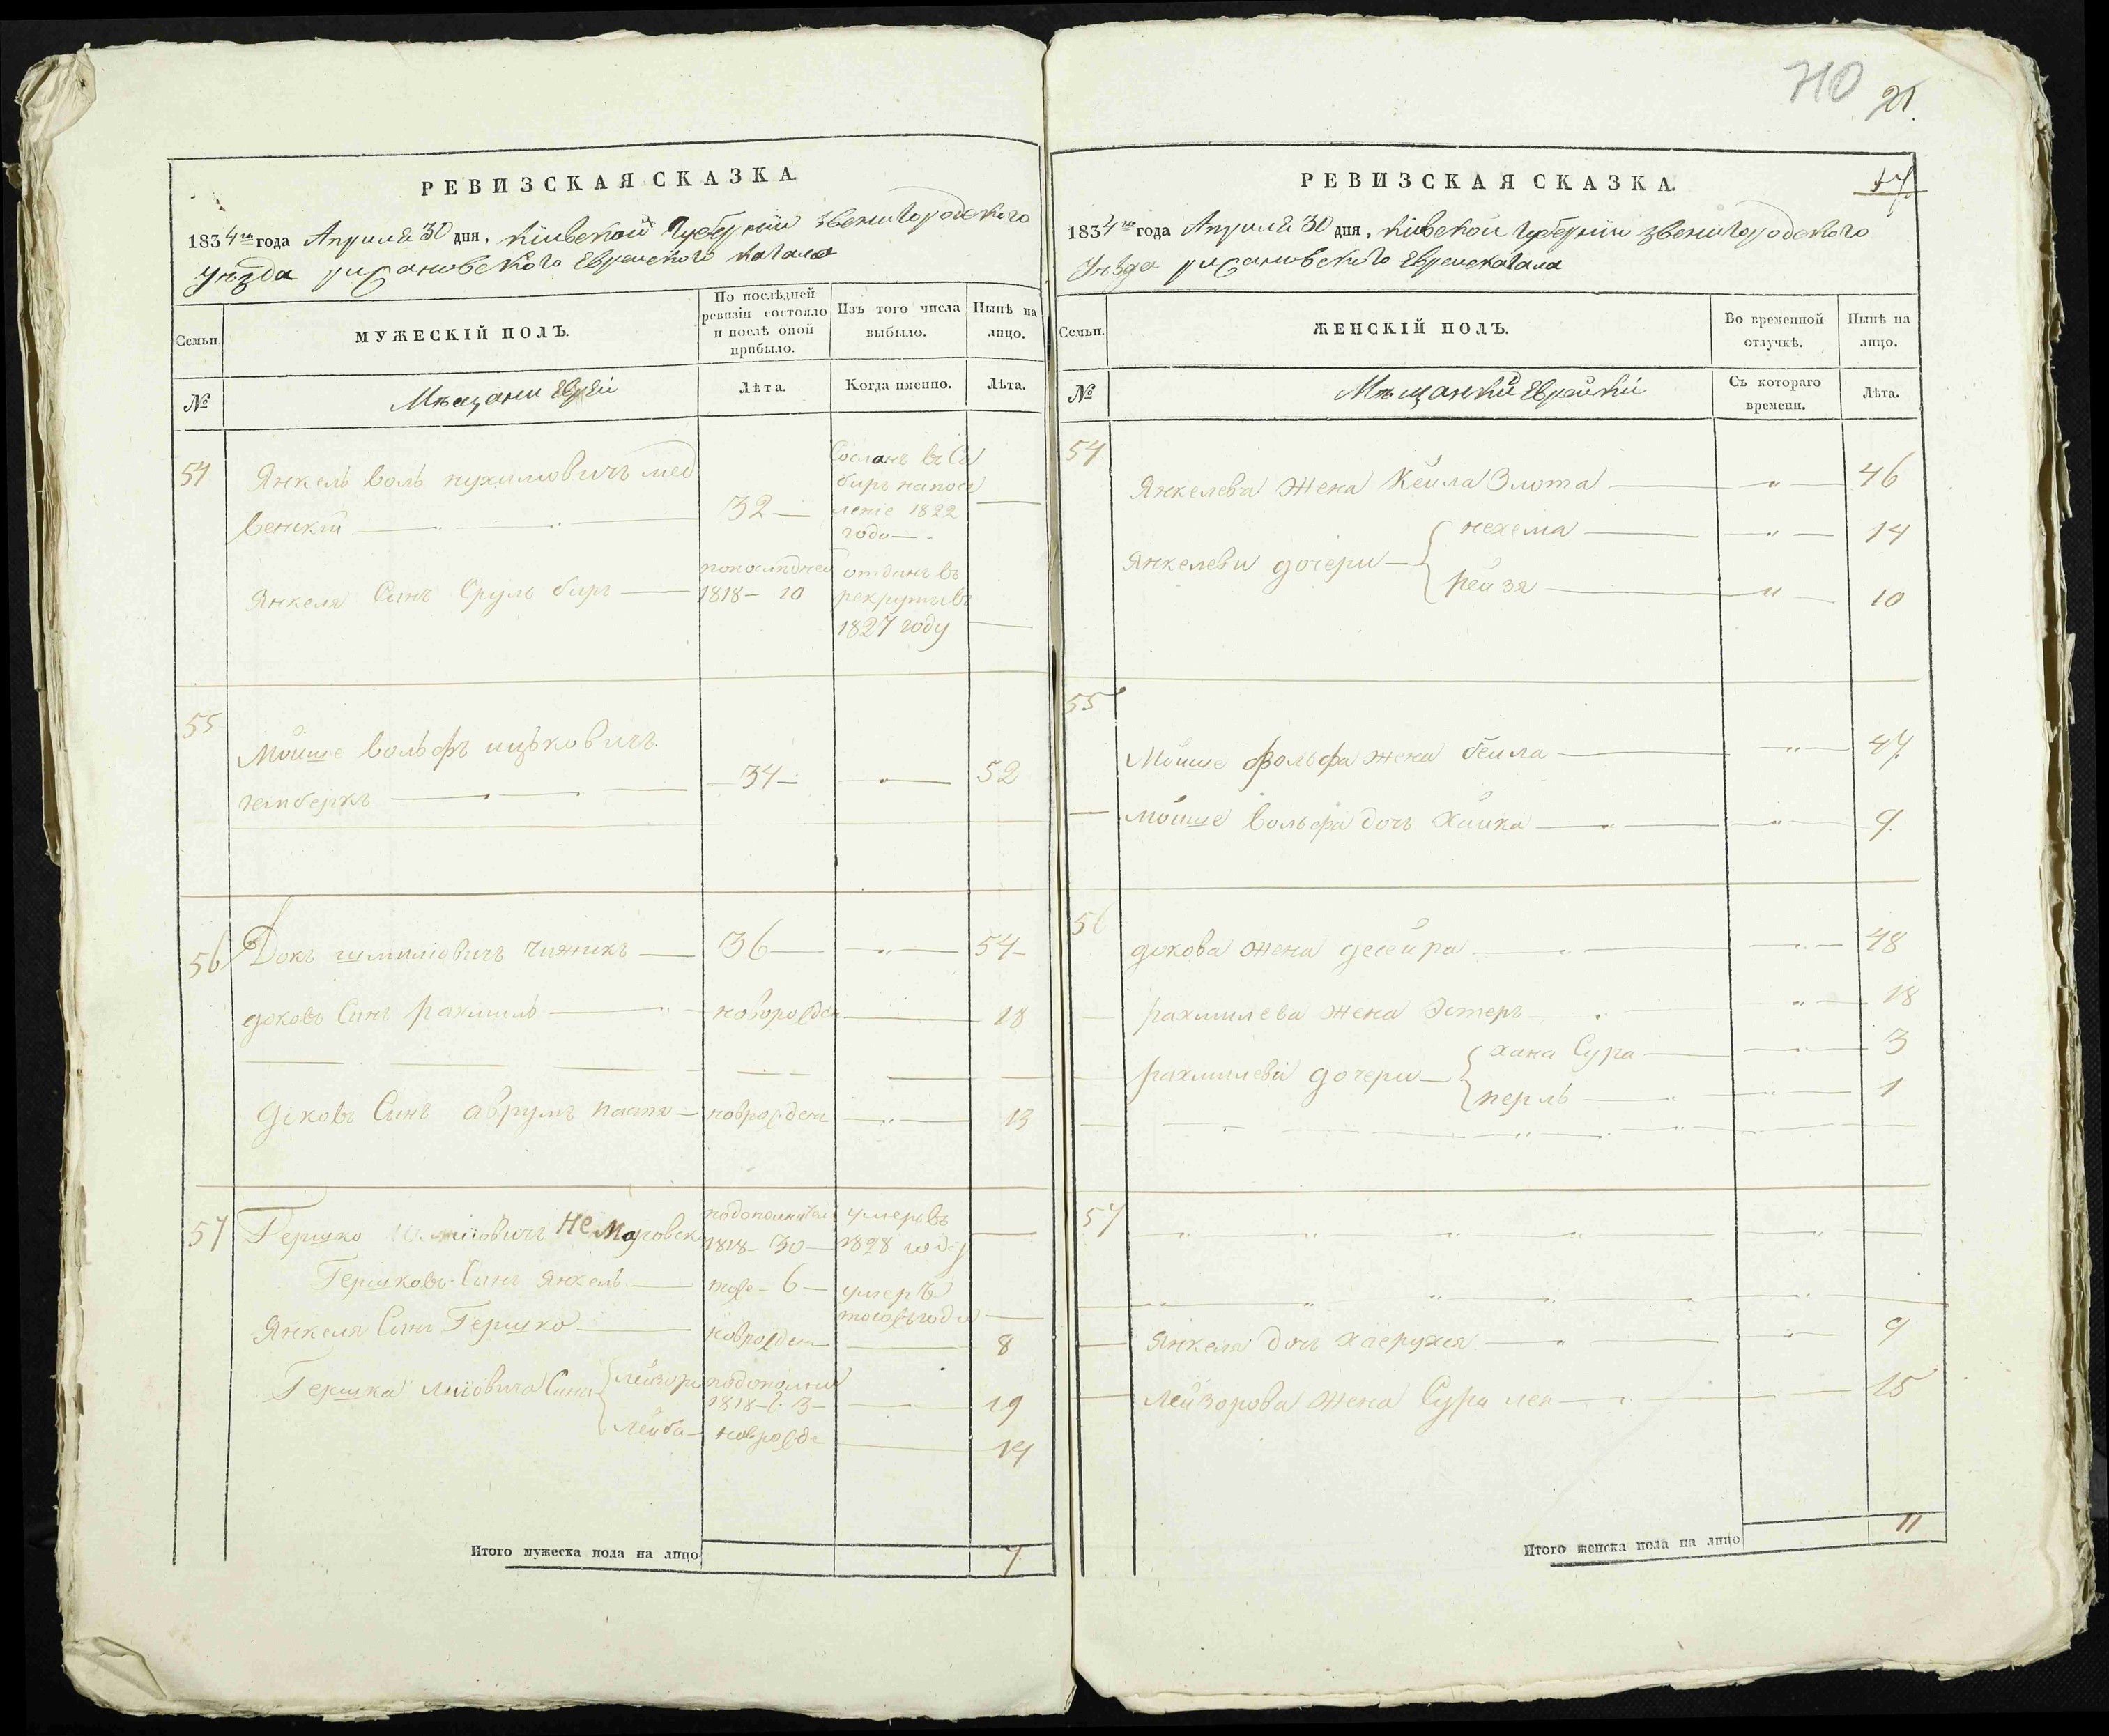 710 21.
РЕВИЗСКАЯ СКАЗКА.
1834го года Апреля 30 дня, Кіевской Губерніи Звенигородского
Уѣзда рижановского Еврейского Кагала
Семьи.
МУЖЕСКІЙ ПОЛЪ.
По послѣдней ревизіи состояло и послѣ оной прибыло.
Изъ того числа выбыло.
Нынѣ на лицо.
№
Мѣщани Евреи
Лѣта.
Когда именно.
Лѣта.
54
Янкель воль нухимовичъ мед
венскій
32
Сосланъ въ Си
биръ напосе
леніе 1822
года
Янкеля Синъ Сруль биръ
1818 - 10
отданъ въ
рекруты въ
1827 году
55
Мойше вольфъ ицьковичъ
34
52
56
Докъ шмиліовичъ чижикъ
36
54
доковъ Синъ рахмиль
новорожден
18
доковъ Синъ аврумъ
новрожден
13
57
Гершко Немировск
1818 - 30
умеръ въ
1828 году
Гершковъ Синъ Янкель
тоже - 6
умеръ
тогожъ года
Янкеля Синъ Гершко
новрожден
8
Гершка Сини
Лейзоръ
1818
19
Лейба
новрожде
14
Итого мужеска пола на лицо
7
РЕВИЗСКАЯ СКАЗКА.
17
1834го года Апреля 30 дня, Кіевской Губерніи Звенигородского
Уѣзда рижановского Еврей кагала
Семьи.
ЖЕНСКІЙ ПОЛЪ.
Во временной отлучкѣ.
Нынѣ на лицо.
№
Мѣщанкіи Еврейкіи
Съ котораго времени.
Лѣта.
54
Янкелева жена Кейла Злота
46
Янкелеви дочери
нехема
14
рейзя
10
55
Мойше фольфа жена бейла
47
мойше вольфа дочъ Хайка
9
56
докова жена десейра
48
рахмилева жена Эстеръ
18
рахмилеви дочери
хана Сура
3
перль
1
57
Янкеля дочъ
9
Лейзорова жена Сура лея
15
Итого женска пола на лицо
11